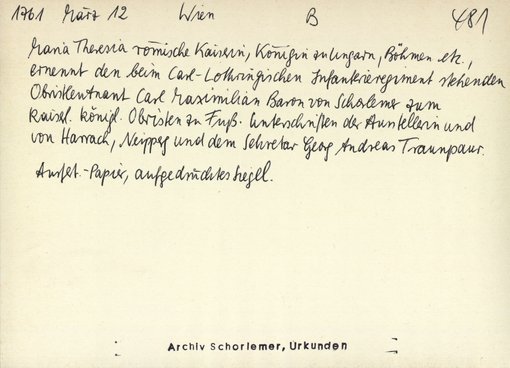 1761 März 12 Wien B 481
Maria Theresia römische Kaiserin, Königin zu Ungarn, Böhmen etc.,
ernennt den beim Carl-Lothringischen Infantrieregiment stehenden
Obristleutnant Carl Maximilian Baron von Schorlemer zum
kaiserl. königl. Obristen zu Fuß. Unterschriften der Ausstellerin und
von Harrach, Neipperg und dem Sekretär Georg Andreas Traunpaur.
Ausf.-Papier, aufgedrucktes Siegel.
Archiv Schorlemer, Urkunden